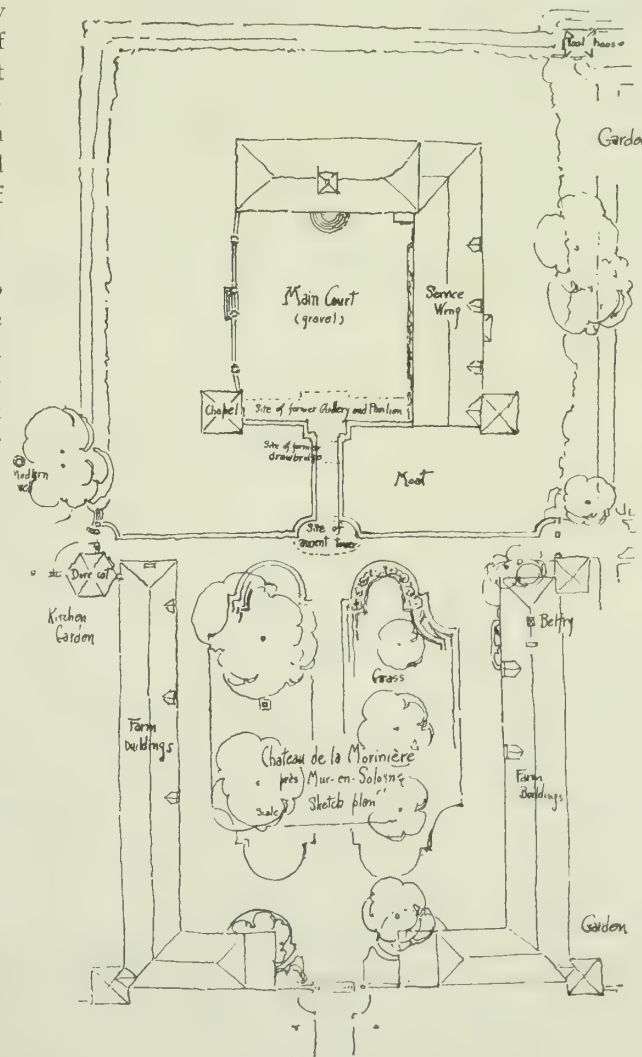 Garden
Main Court
(gravel)
Service
Wing
Chapel
Site of former Gallery and Pavilion
Site of former
drawbridge
Moat
Modern
Site of
ancient tower
Dove cot
Kitchen
Garden
Belfry
Grass
Farm
buildings
Chateau de la Morinière
près Mur-en-Sologne
Sketch plan
Scale
Farm
Buildings
Garden